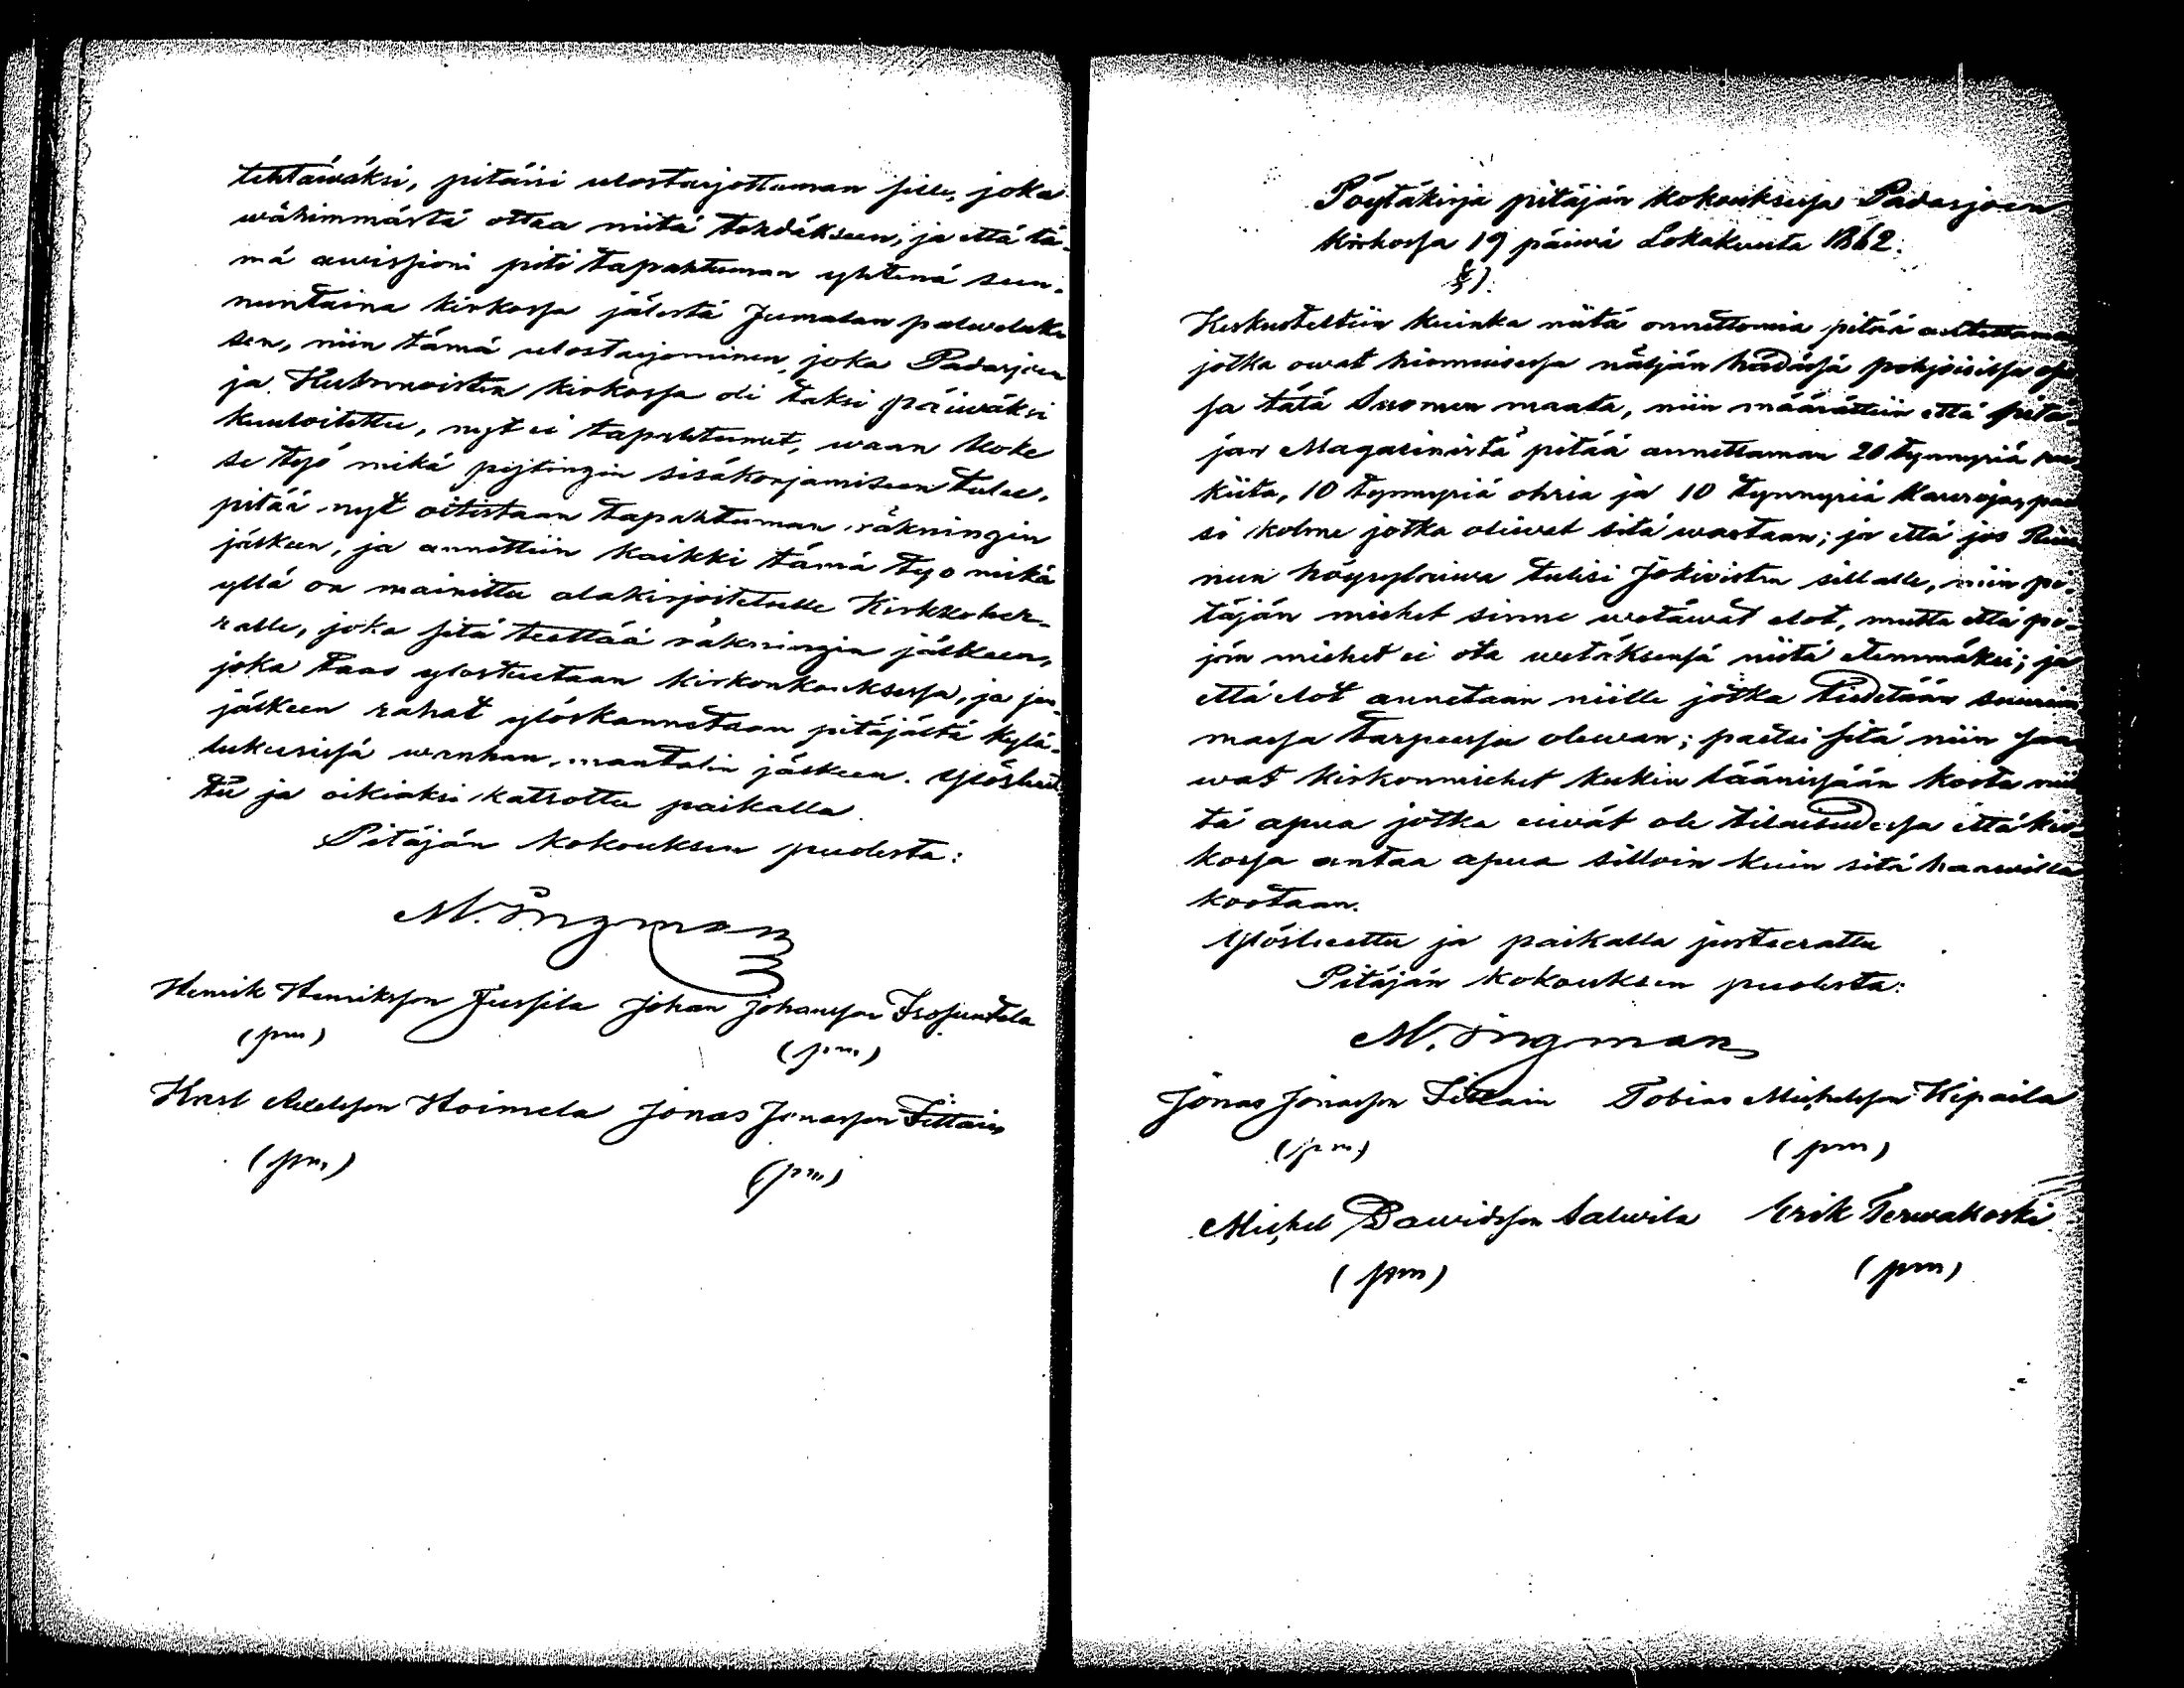 tehtäwäksi, pitäisi ulostarjottaman sille, joka
wähimmästä ottaa niitä tehdäkseen, ja että tä-
mä auvisjoni piti tapahtuman yhtenä sun-
nuntaina kirkossa jälestä Jumalan palveluk-
sen, niin tämä ulostarjominen, joka Padasjoen
ja Kuhmoisten kirkossa oli täksi päiwäksi
kuuloitettu, nyt ei tapahtunut, waan koko
se työ mikä pygtingin sisäkorjamiseen tulee,
pitää nyt oitistaan tapahtuman räkningin
jälkeen, ja annettiin kaikki tämä työ mikä
yllä on mainittu alakirjoitetulle Kirkkoher-
ralle, joka sitä teettää räkningin jälkeen,
joka taas ylösluetaan kirkonkokouksessa, ja jon-
jälkeen rahat ylöskannetaan pitäjästä kylä-
lukuisissa wanhan mantalin jälkeen. Ylöslu-
tu ja oikiaksi katsottu paikalla
Pitäjän kokouksen puolesta:
M. Ingman
Henrik Henriksson Jussila Johan Johansson Isojuntela
(pm) (pm)
Karl Hoimela Jonas Jonasson Tittain
(pm) (pm)
Pöytäkirja pitäjän kokouksessa Padasjoen
kirkossa 19 päiwä Lokakuuta 1862.
§ 1.
Keskusteltiin kuinka niitä onnettomia pitää autettaman
jotka owat hirmuisessa näljän hädässä pohjoisissa
sa tätä Suomen maata, niin määrättiin että pitä-
jän Magasinista pitää annettaman 20 tynnyriä
kiita, 10 tynnyriä ohria ja 10 tynnyriä kauroja, pait
si kolme jotka oliwat sitä wastaan; ja että jos
nun höyrylaiwa tulisi Jokioisten sillalle, niin pi-
täjän miehet sinne wetäwät elot, mutta että pi-
jän miehet ei ota wetäksensä niitä etemmäksi; ja
että elot annetaan niille jotka tiedetään suurim
massa tarpeessa olewan; paitsi sitä niin saa
wat kirkonmiehet kukin läänissään koota niil
tä apua jotka eiwät ole tilaisudessa että kir-
kossa antaa apua silloin kuin sitä haawilla
kootaan.
Ylösluettu ja paikalla justeerattu
Pitäjän kokouksen puolesta:
M. Ingman
Jonas Jonasson Tittain Tobias Michelsson Kipaila
(pm) (pm)
Michel Dawidsson Salwila Erik Terwakoski
(pm) (pm)